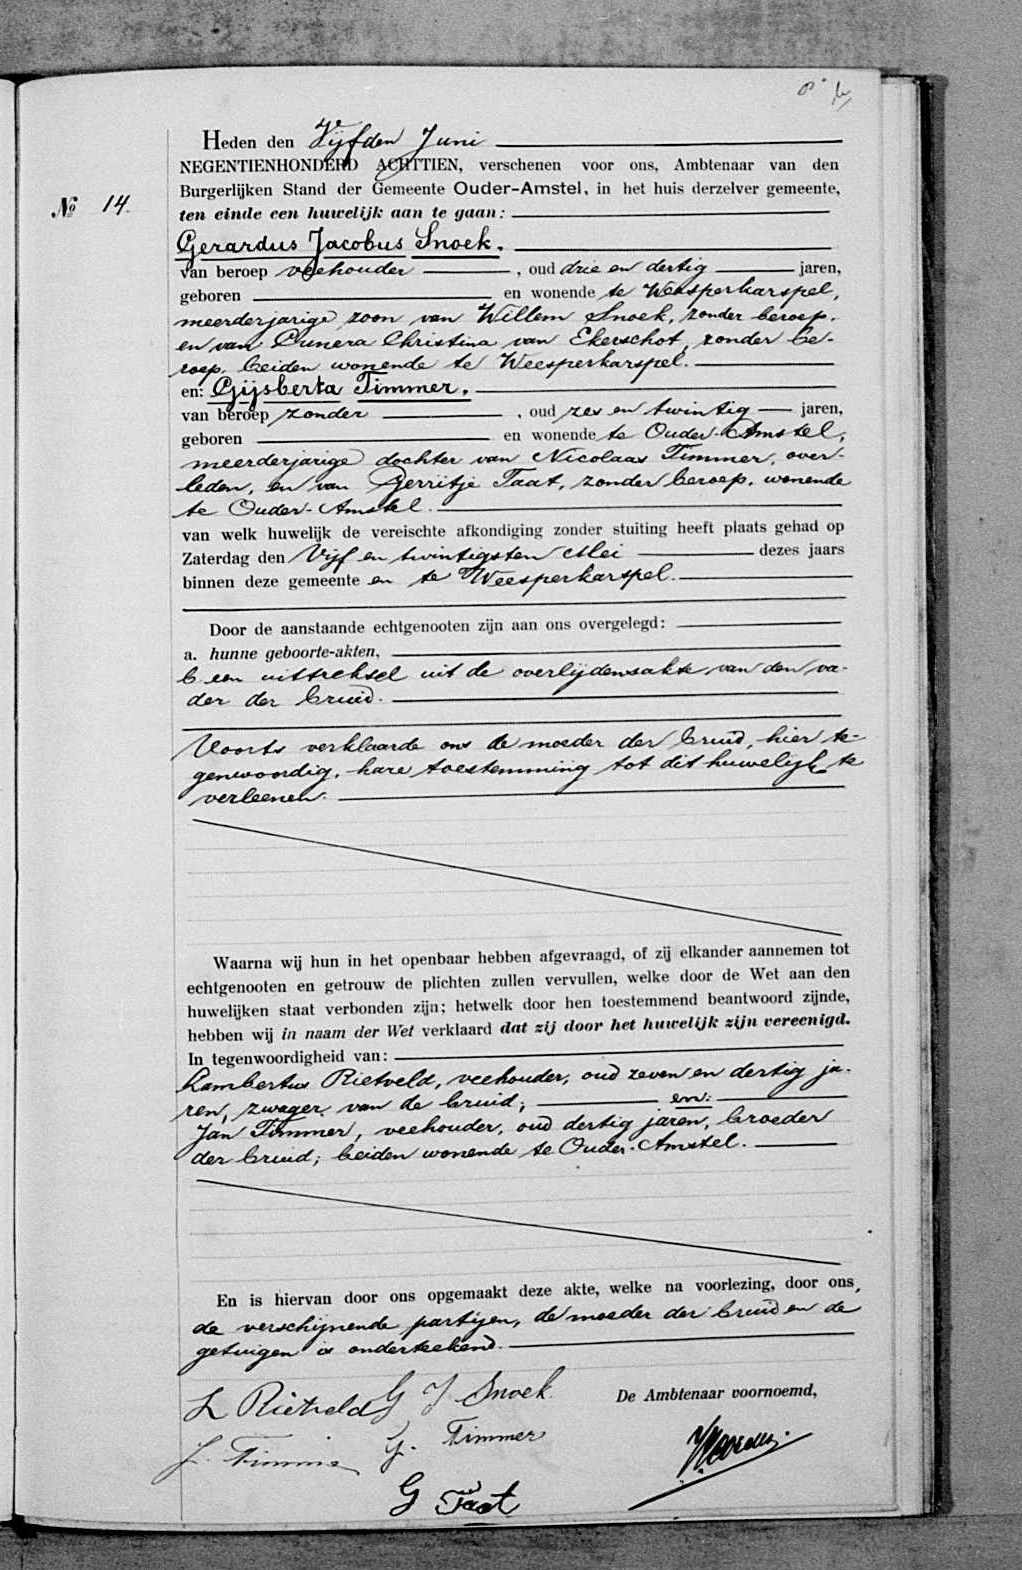 Heden den Vijfden Juni
NEGENTIENHONDERD ACHTTIEN, verschenen voor ons, Ambtenaar van den
Burgerlijken Stand der Gemeente Ouder-Amstel, in het huis derzelver gemeente,
№ 14.
ten einde een huwelijk aan te gaan:
Gerardus Jacobus Snoek,
van beroep veehouder, oud drie en dertig jaren,
geboren en wonende te Weesperkarspel,
meerderjarige zoon van Willem Snoek, zonder beroep,
en van Cunera Christina van Ekerschot, zonder be-
roep, beiden wonende te Weesperkarspel.
en: Gijsberta Timmer,
van beroep zonder, oud zes en twintig jaren,
geboren en wonende te Ouder-Amstel,
meerderjarige dochter van Nicolaas Timmer, over-
leden, en van Gerritje Taat, zonder beroep, wonende
te Ouder-Amstel.
van welk huwelijk de vereischte afkondiging zonder stuiting heeft plaats gehad op
Zaterdag den Vijf en twintigsten Mei dezes jaars
binnen deze gemeente en te Weesperkarspel.
Door de aanstaande echtgenooten zijn aan ons overgelegd:
a. hunne geboorte-akten,
b een uittreksel uit de overlijdensakte van den va-
der der bruid.
Voorts verklaarde ons de moeder der bruid, hier te-
genwoordig, hare toestemming tot dit huwelijk te
verleenen.
Waarna wij hun in het openbaar hebben afgevraagd, of zij elkander aannemen tot
echtgenooten en getrouw de plichten zullen vervullen, welke door de Wet aan den
huwelijken staat verbonden zijn; hetwelk door hen toestemmend beantwoord zijnde,
hebben wij in naam der Wet verklaard dat zij door het huwelijk zijn vereenigd.
In tegenwoordigheid van:
Lambertus Rietveld, veehouder, oud zeven en dertig ja-
ren, zwager van de bruid; en:
Jan Timmer, veehouder, oud dertig jaren, broeder
der bruid; beiden wonende te Ouder-Amstel.
En is hiervan door ons opgemaakt deze akte, welke na voorlezing, door ons,
de verschijnende partijen, de moeder der bruid en de
getuigen is onderteekend.
L Rietveld G J Snoek
De Ambtenaar voornoemd,
J. Timmer G. Timmer
G Taat